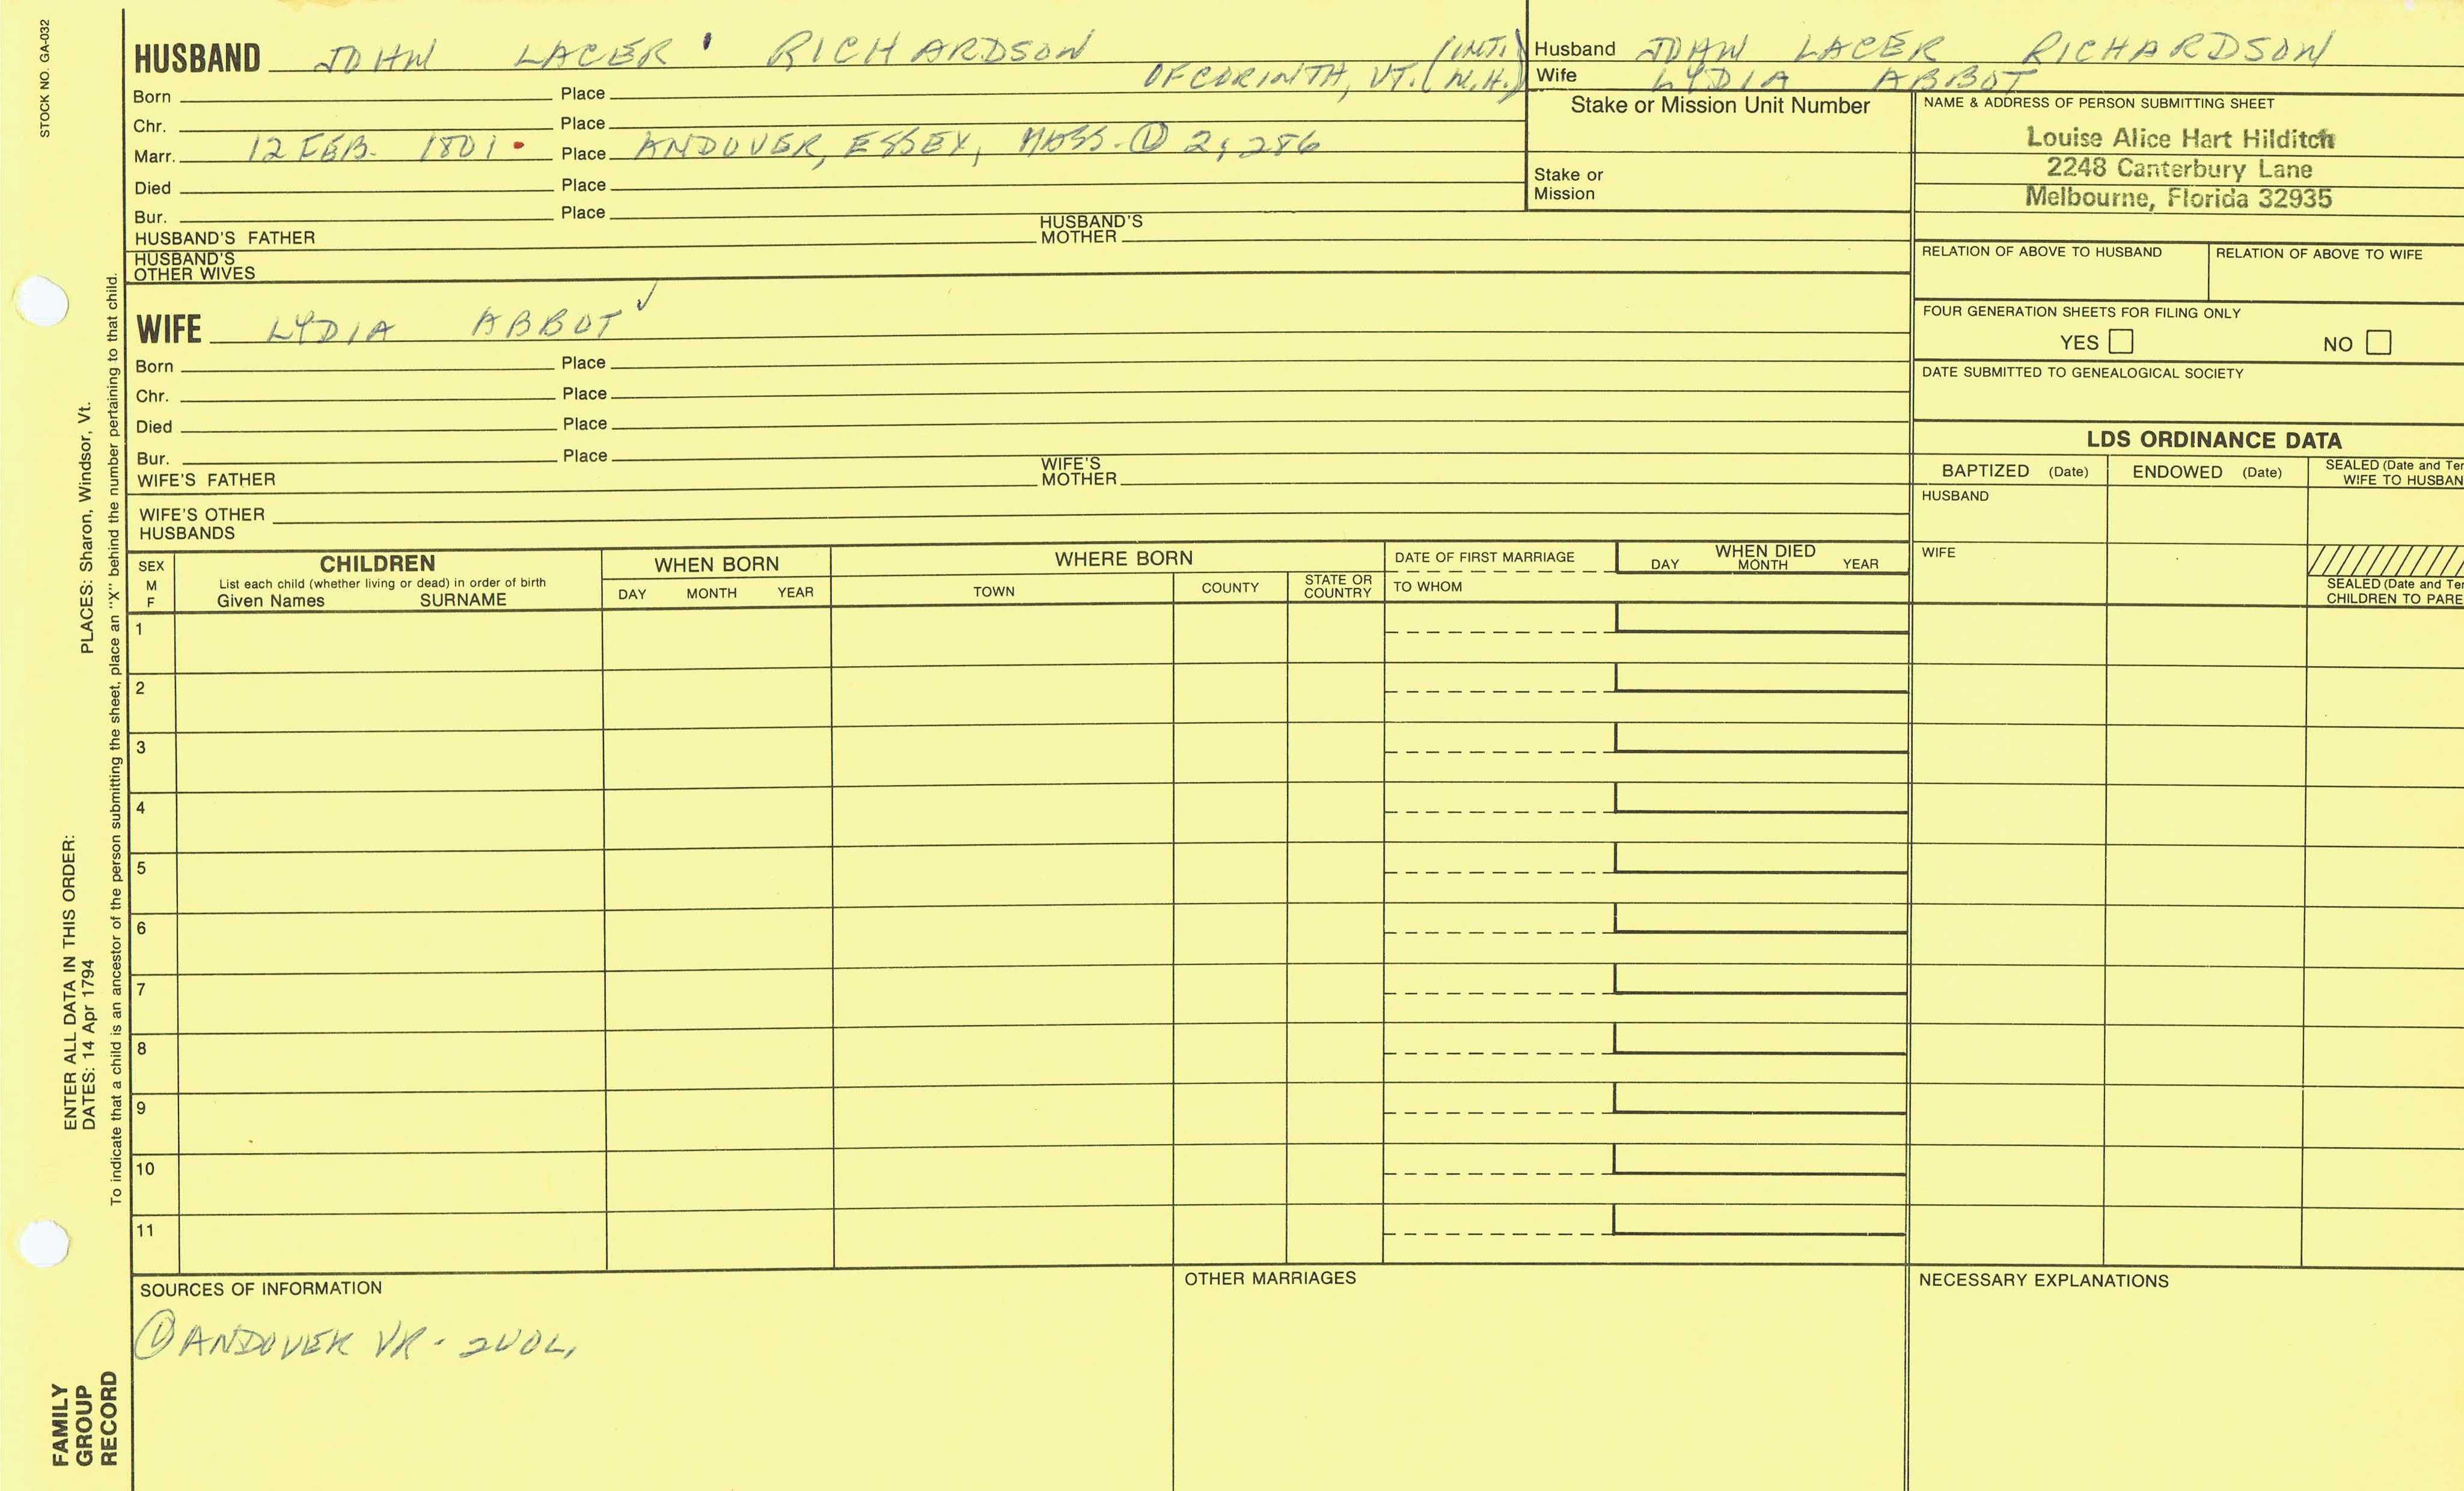 STOCK NO. GA-032
HUSBAND JOHN LACER RICHARDSON (INT.)
OF CORINTH, VT. (N.H.)
Born Place
Chr. Place
Marr. 12 FEB. 1801 Place ANDOVER, ESSEX, MASS. ① 2, 286
Died Place
Bur. Place
HUSBAND'S FATHER HUSBAND'S MOTHER
HUSBAND'S
OTHER WIVES
WIFE LYDIA ABBOT ✓
Born Place
Chr. Place
Died Place
Bur. Place
WIFE'S FATHER WIFE'S MOTHER
WIFE'S OTHER
HUSBANDS
Husband JOHN LACER RICHARDSON
Wife LYDIA ABBOT
Stake or Mission Unit Number
Stake or
Mission
NAME & ADDRESS OF PERSON SUBMITTING SHEET
Louise Alice Hart Hilditch
2248 Canterbury Lane
Melbourne, Florida 32935
RELATION OF ABOVE TO HUSBAND RELATION OF ABOVE TO WIFE
FOUR GENERATION SHEETS FOR FILING ONLY
YES NO
DATE SUBMITTED TO GENEALOGICAL SOCIETY
LDS ORDINANCE DATA
BAPTIZED (Date) ENDOWED (Date) SEALED (Date and Ter
WIFE TO HUSBAN
HUSBAND
WIFE
SEALED (Date and Ter
CHILDREN TO PARE
SEX
M
F
CHILDREN
List each child (whether living or dead) in order of birth
Given Names SURNAME
WHEN BORN
DAY MONTH YEAR
WHERE BORN
TOWN COUNTY STATE OR COUNTRY
DATE OF FIRST MARRIAGE
TO WHOM
WHEN DIED
DAY MONTH YEAR
1
2
3
4
5
6
7
8
9
10
11
SOURCES OF INFORMATION
① ANDOVER VR - 2 VOL.
OTHER MARRIAGES
NECESSARY EXPLANATIONS
ENTER ALL DATA IN THIS ORDER:
DATES: 14 Apr 1794 PLACES: Sharon, Windsor, Vt.
To indicate that a child is an ancestor of the person submitting the sheet, place an "X" behind the number pertaining to that child.
FAMILY
GROUP
RECORD